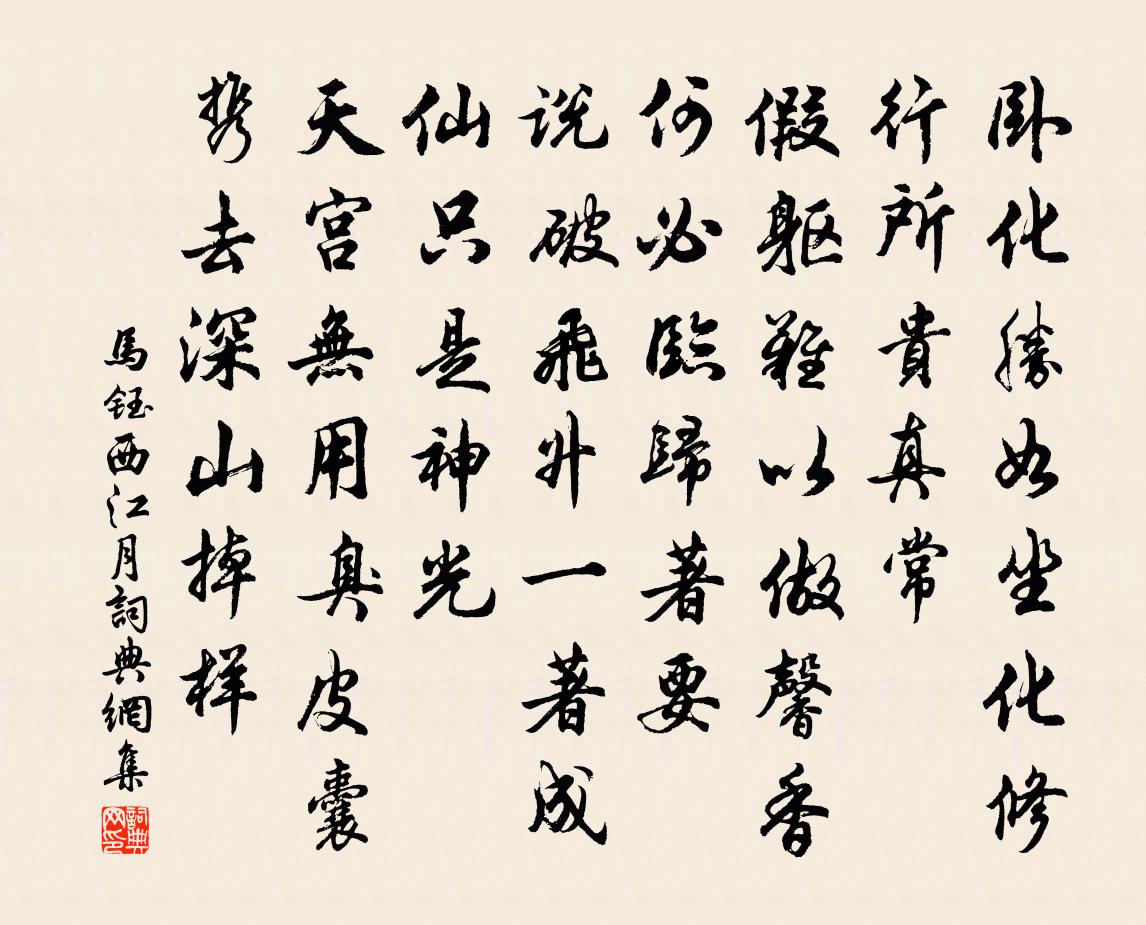 卧化勝如坐化修
行所貴真常
假軀難以做馨香
何必臨歸著要
说破飛升一著成
仙只是神光
天宫無用臭皮囊
携去深山掉样
馬鈺西江月詞典網集
詞典网印